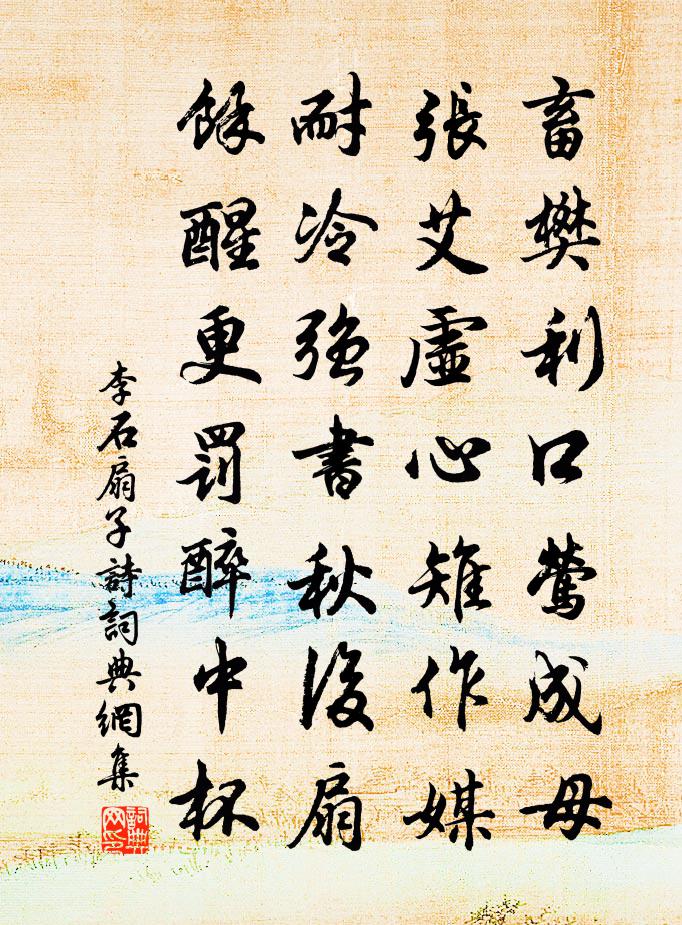 畜樊利口鶯成母
張艾虛心雉作媒
耐冷強書秋後扇
餘醒更罰醉中杯
李石扇子詩詞典網集
詞典網印